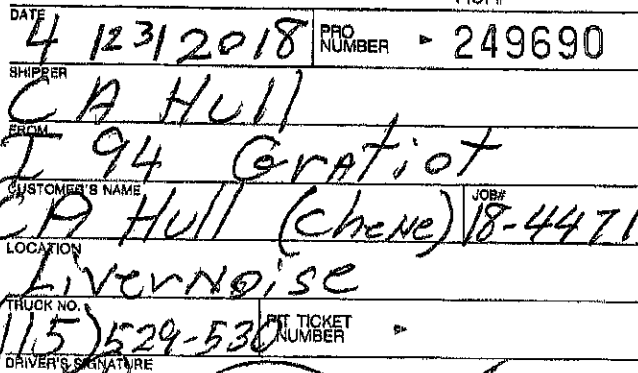 DATE 4 12312018 PRO NUMBER 249690
SHIPPER
CA Hull
FROM
I 94 Gratiot
CUSTOMER'S NAME JOB#
CA Hull (Chene) 18-4471
LOCATION
Livernoise
TRUCK NO.
115) 529-530 PIT TICKET NUMBER
DRIVER'S SIGNATURE